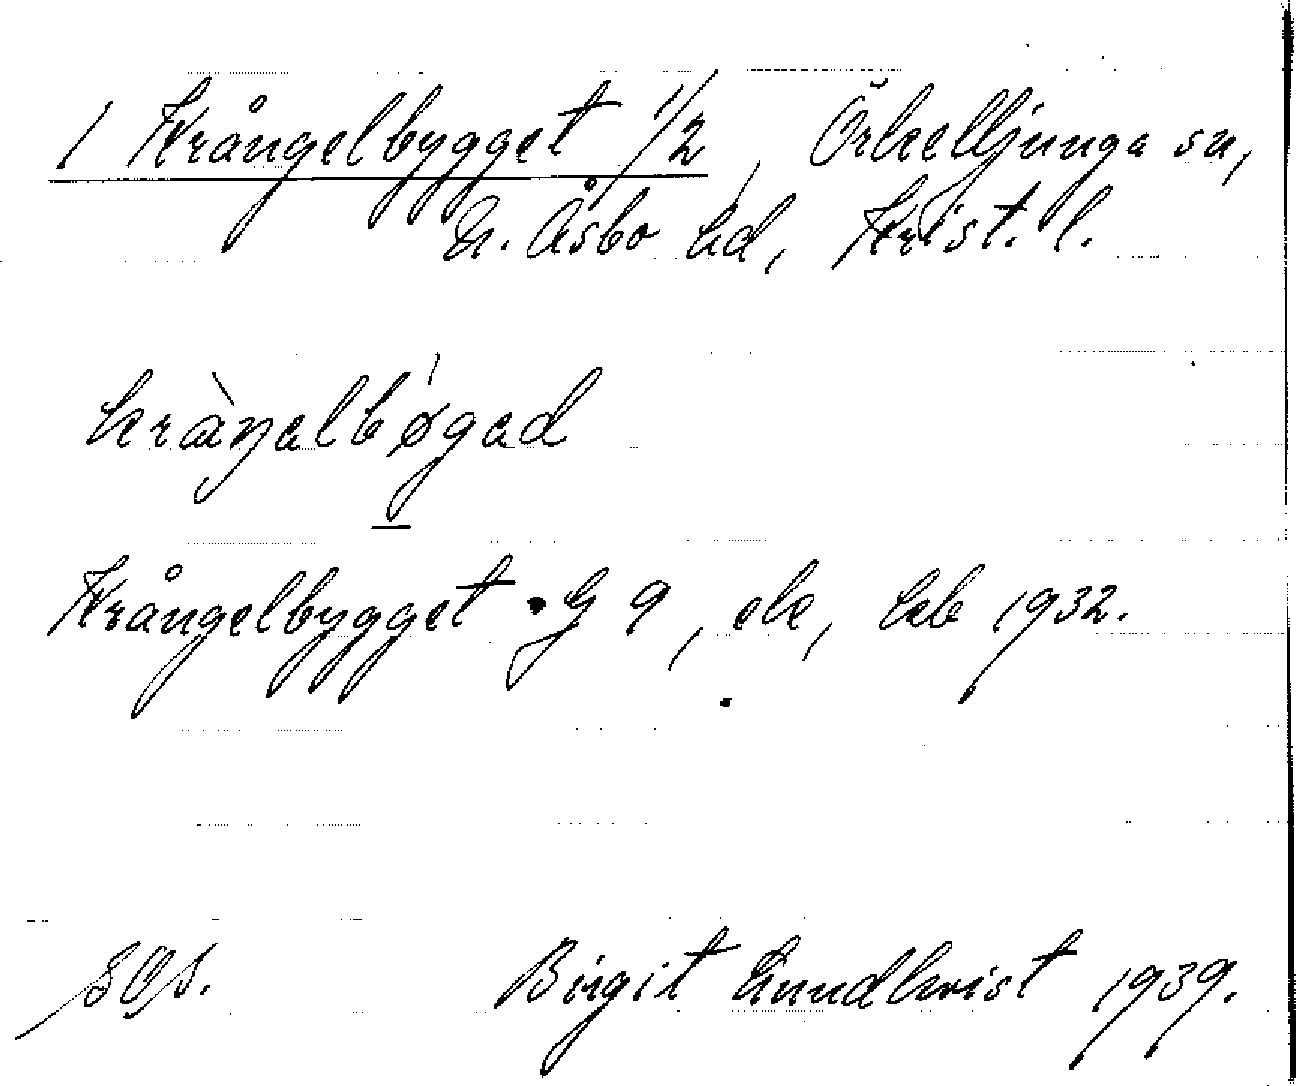 1 Krångelbygget 1/2, Örkelljunga sn,
N. Åsbo hd, Krist. l.
kràŋalbǿgad
Krångelbygget • G 9, ek, kb 1932.
SOS. Birgit Lundkvist 1939.